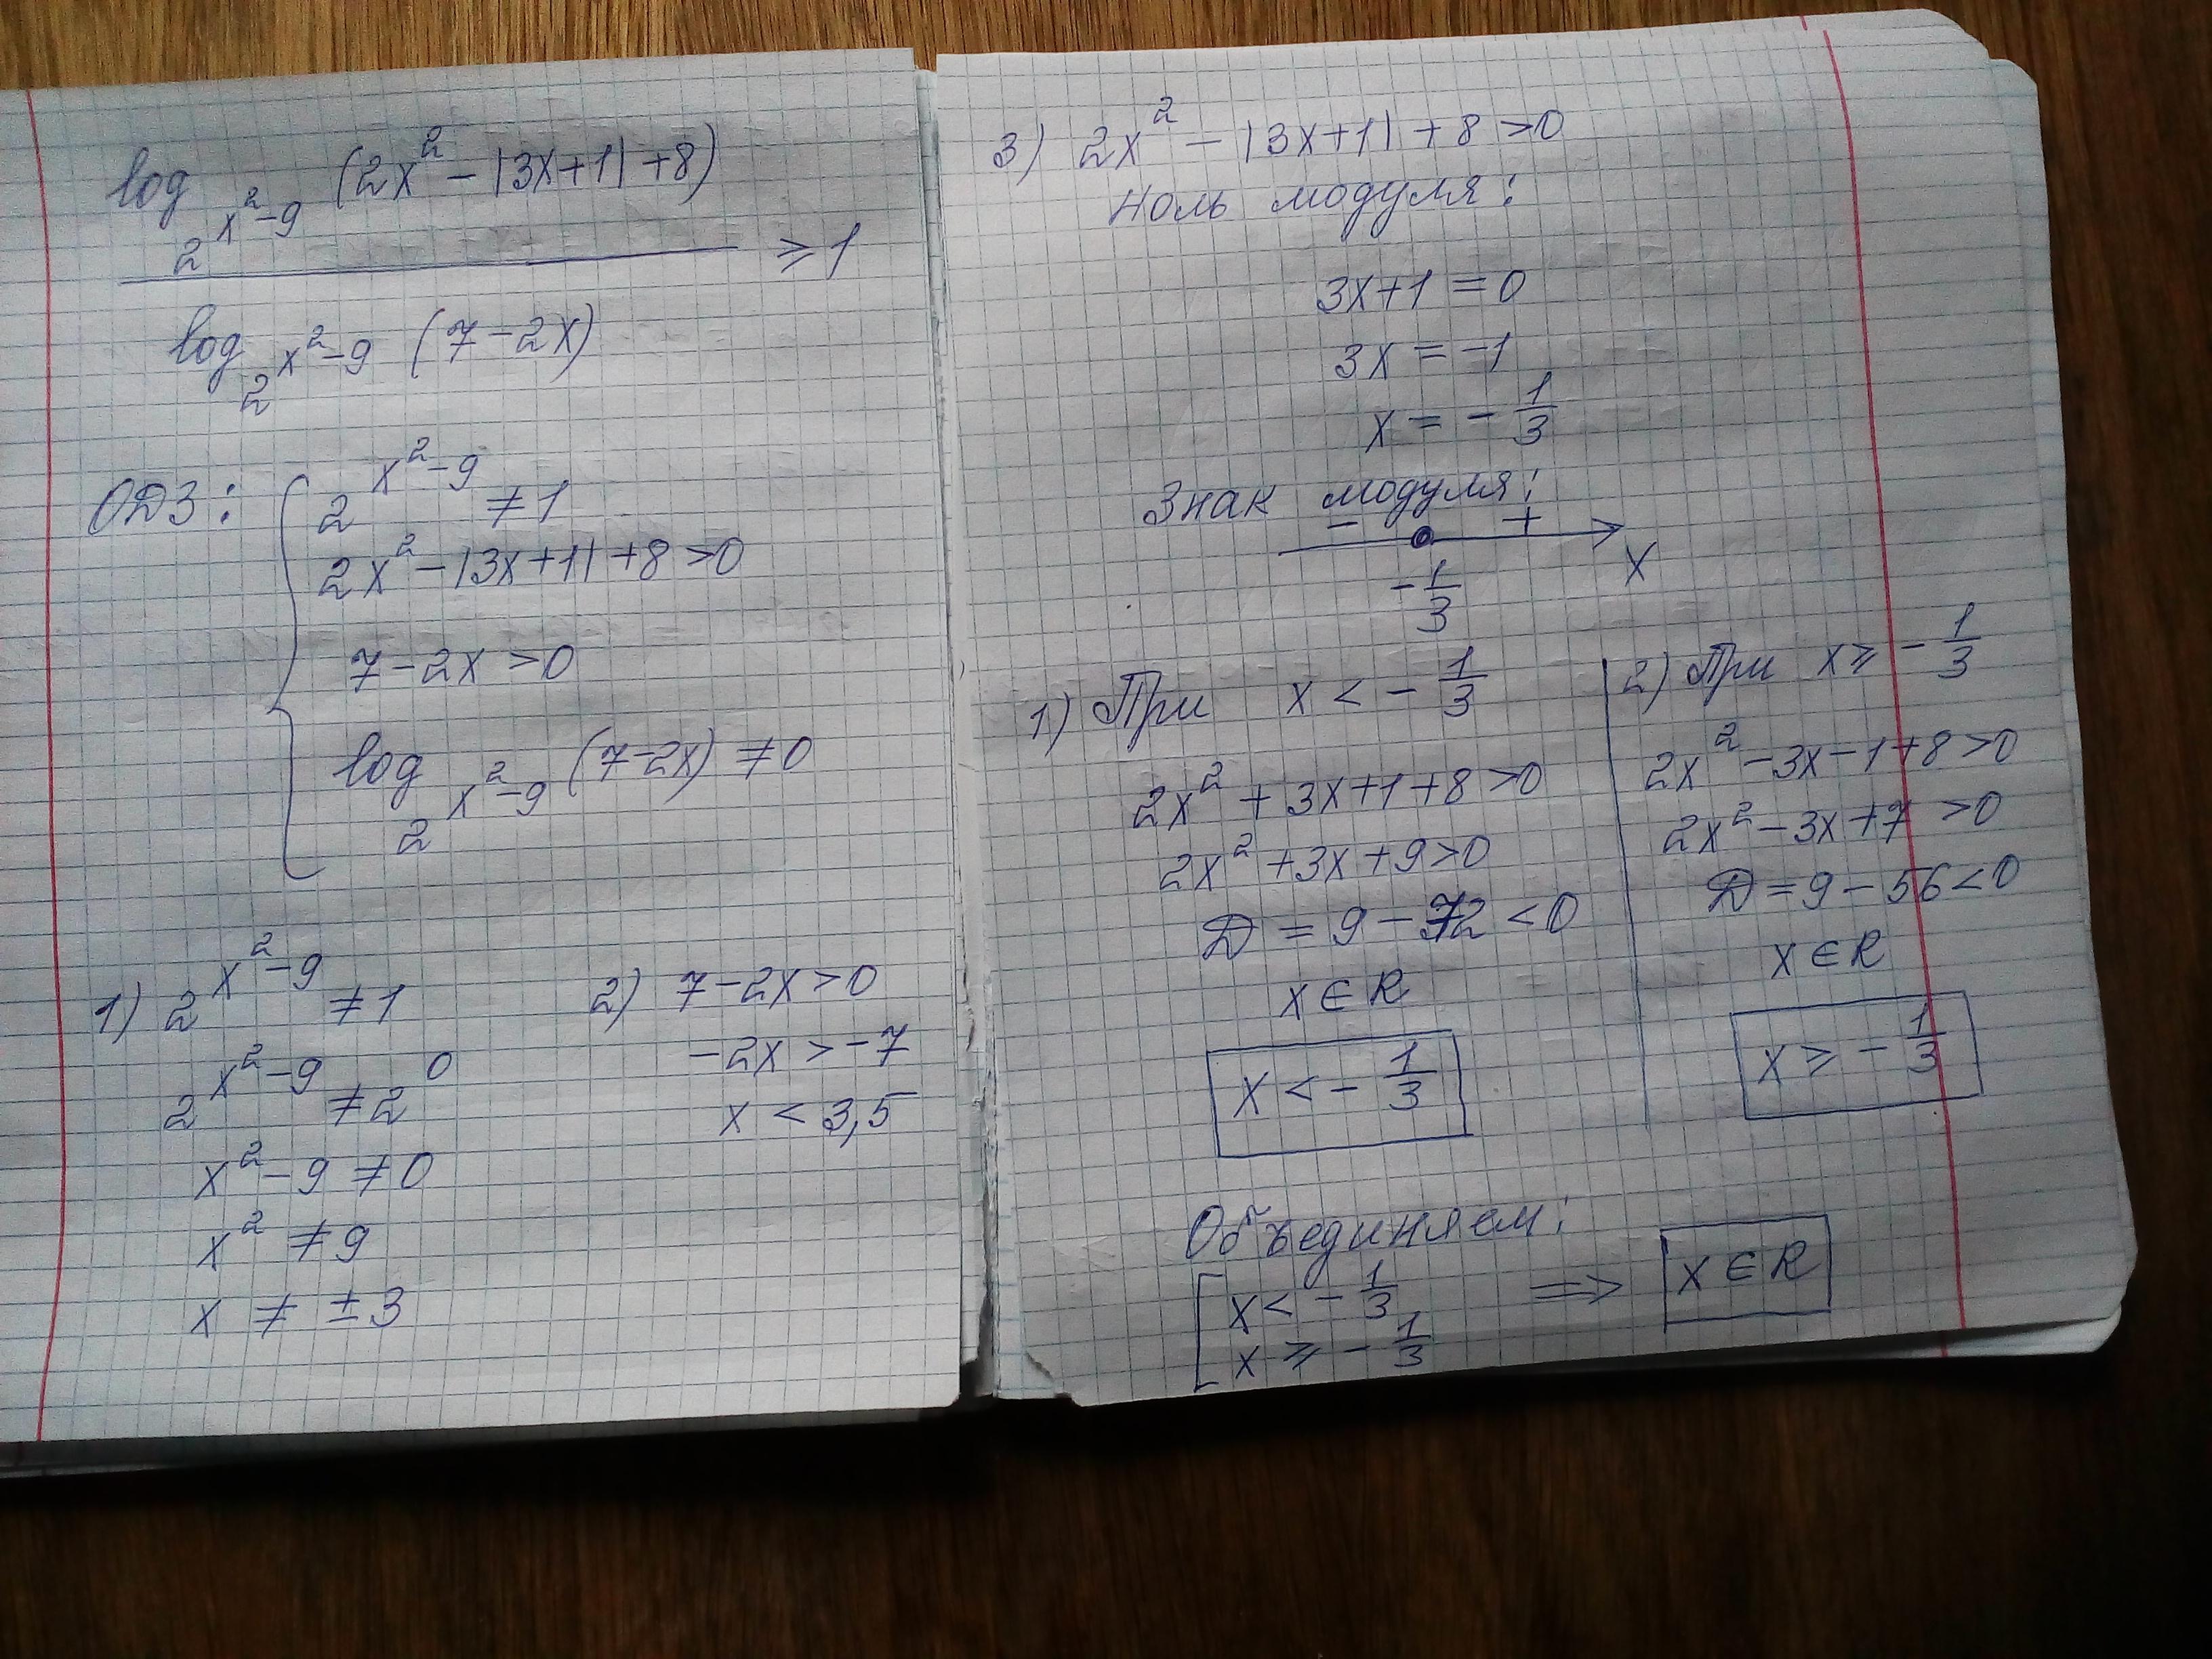 log_{2^{x²-9}} (2x² - |3x+1| + 8)
⩾ 1
log_{2^{x²-9}} (7-2x)
ОДЗ: { 2^{x²-9} ≠ 1
2x² - |3x+1| + 8 > 0
7 - 2x > 0
log_{2^{x²-9}} (7-2x) ≠ 0
1) 2^{x²-9} ≠ 1
2^{x²-9} ≠ 2^0
x² - 9 ≠ 0
x² ≠ 9
x ≠ ±3
2) 7 - 2x > 0
-2x > -7
x < 3,5
3) 2x² - |3x+1| + 8 > 0
Ноль модуля:
3x+1 = 0
3x = -1
x = -1/3
Знак модуля:
- +
-1/3 x
1) При x < -1/3
2x² + 3x + 1 + 8 > 0
2x² + 3x + 9 > 0
D = 9 - 72 < 0
x ∈ R
x < -1/3
2) При x ⩾ -1/3
2x² - 3x - 1 + 8 > 0
2x² - 3x + 7 > 0
D = 9 - 56 < 0
x ∈ R
x ⩾ -1/3
Объединяем:
[ x < -1/3
x ⩾ -1/3
⇒ x ∈ R